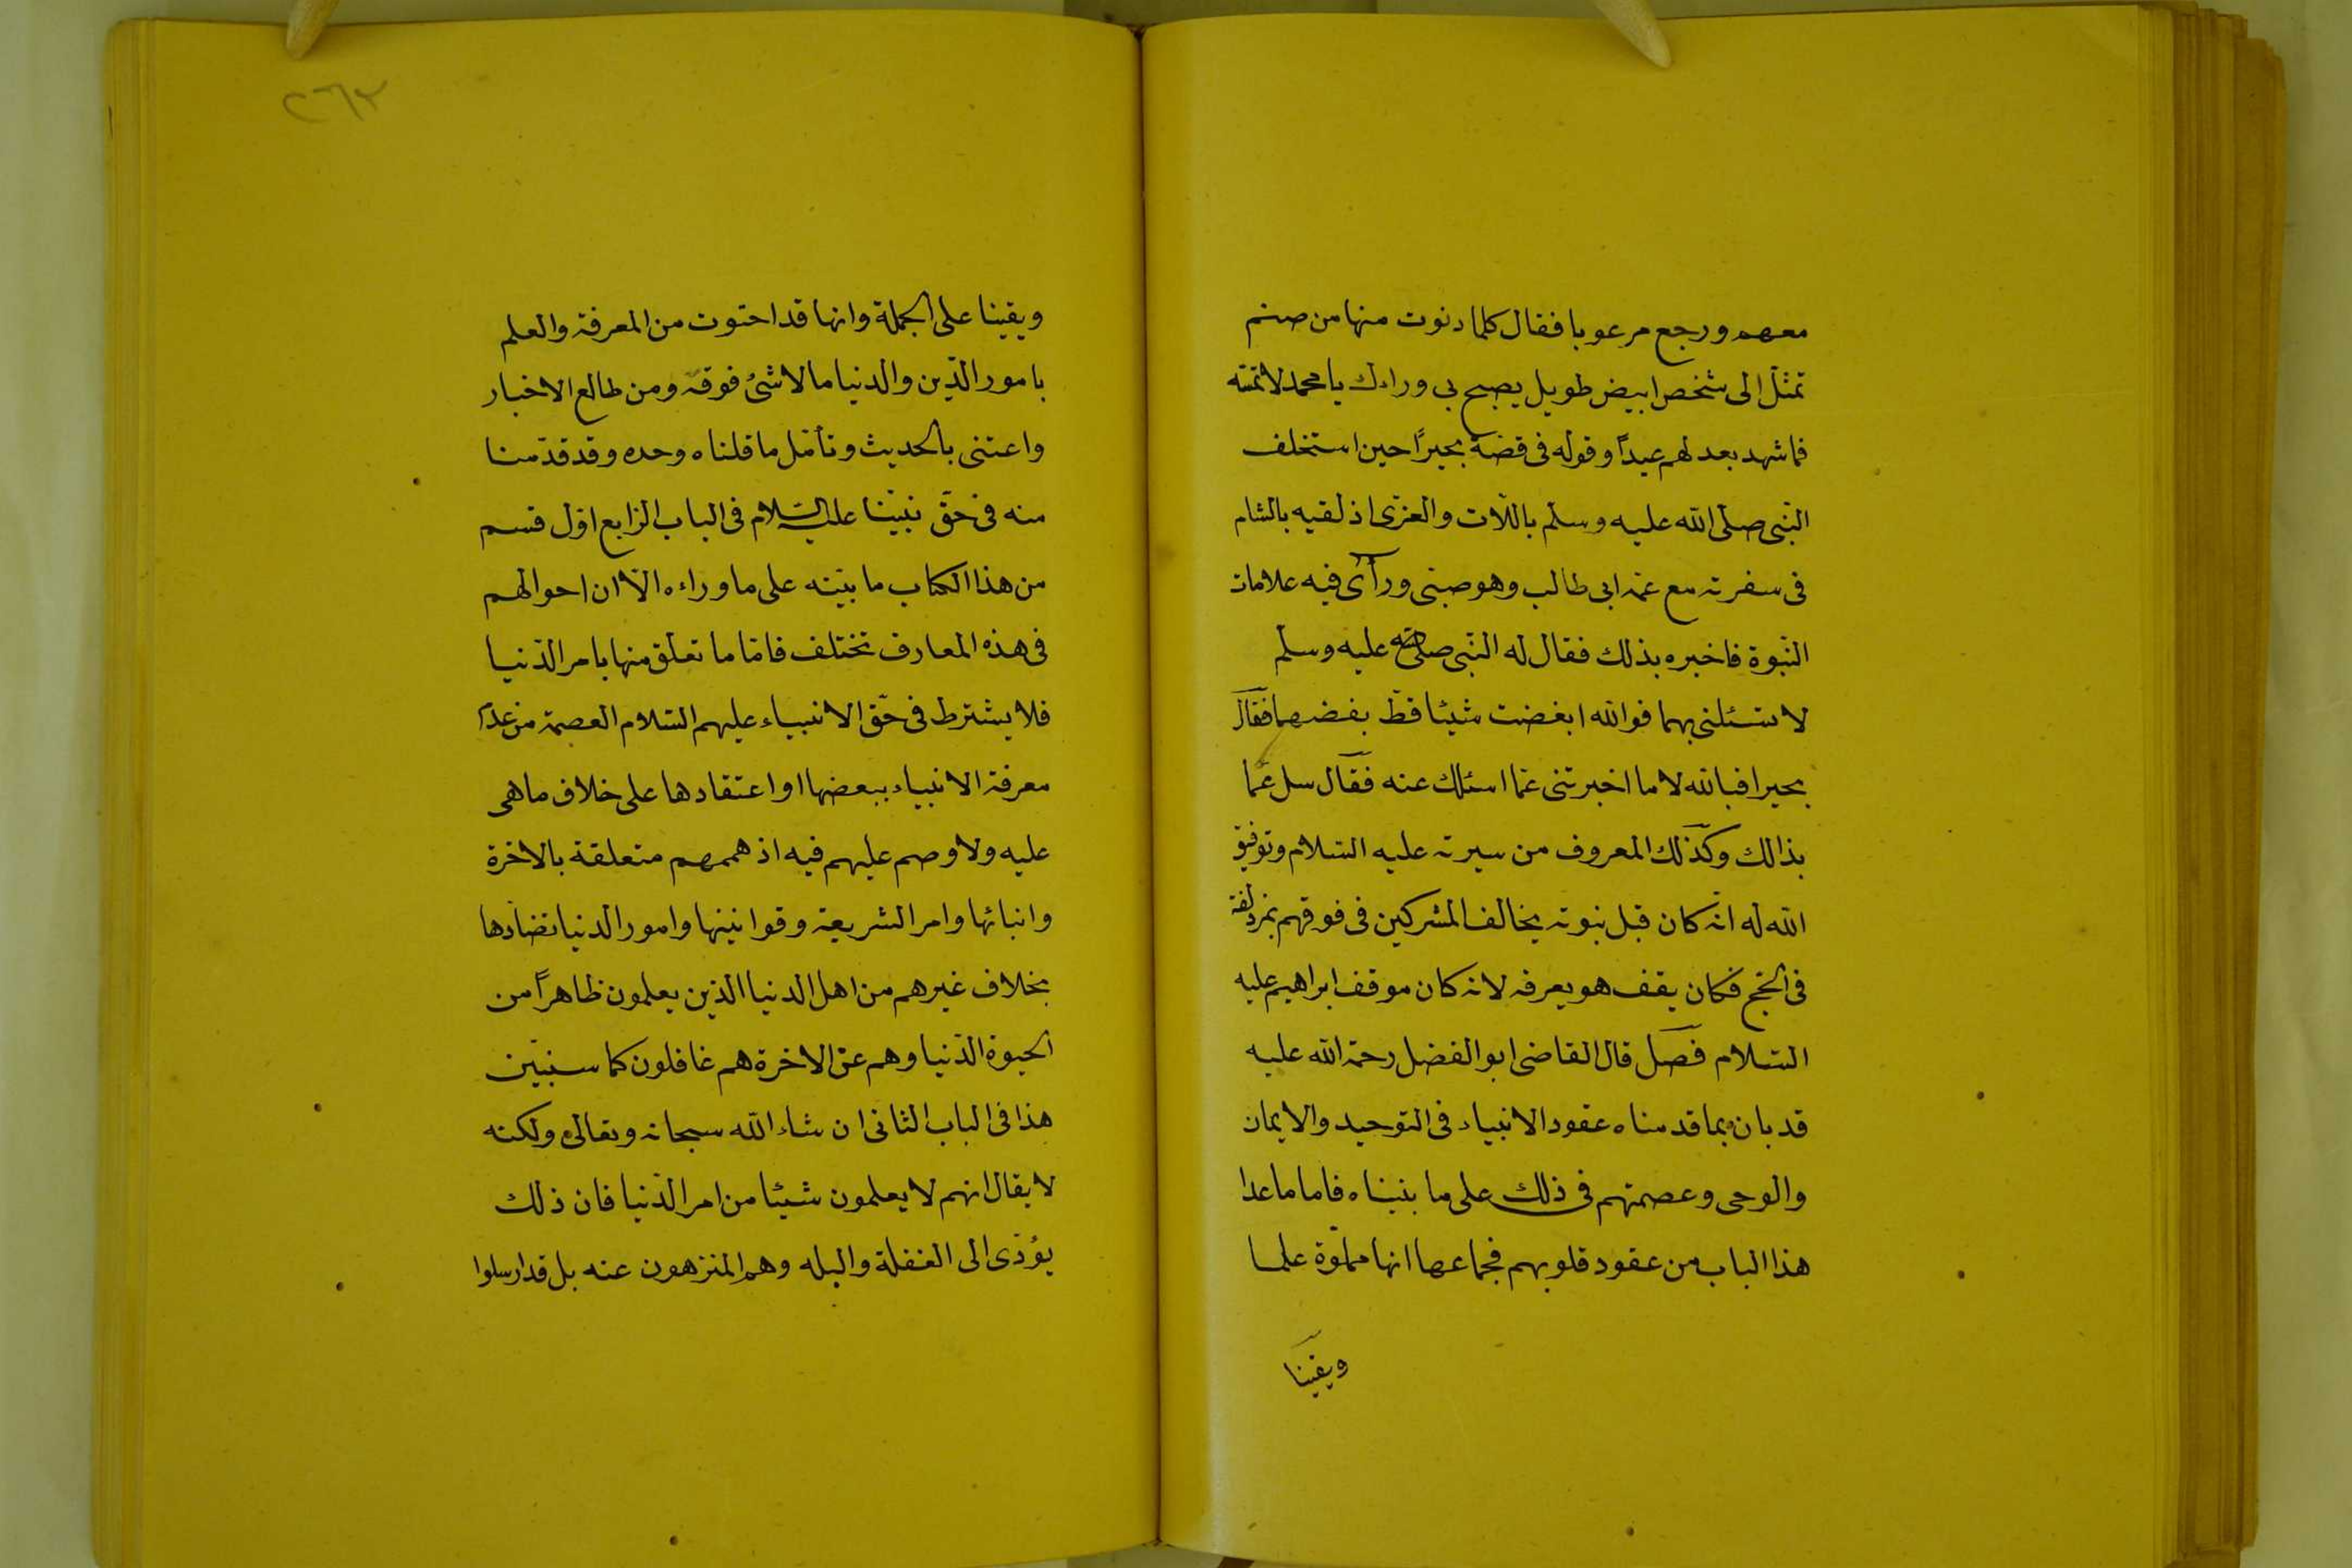 معهم ورجع مرعوبا فقال كلما دنوت منها من صنم
تمثل الى شخص ابيض طويل يصيح بى وراءك يا محمد لا تمسّه
فما شهد بعد لهم عيدًا وقوله فى قصة بحيرًا حين استخلف
النّبى صلّى الله عليه وسلّم باللّات والعزّى اذ لقيه بالشام
فى سفرته مع عمّه ابى طالب وهو صبى ورأى فيه علامات
النّبوة فاخبره بذلك فقال له النّبى صلى الله عليه وسلّم
لا تسئلنى بهما فوالله ابغضت شيئا قطّ بغضهما فقال
بحيرا فبالله لا ما اخبرتنى عمّا اسئلك عنه فقال سل عمّا
بذالك وكذلك المعروف من سيرته عليه السّلام وتوفيق
الله له انّه كان قبل نبوته يخالف المشركين فى فوقهم بمزدلفة
فى الحجّ فكان يقف هو بعرفه لانه كان موقف ابراهيم عليه
السّلام فصل قال القاضى ابو الفضل رحمة الله عليه
قد بان بما قدمناه عقود الانبياء فى التوحيد والايمان
والوحى وعصمتهم فى ذلك على ما بيناه فاما ما عدا
هذا الباب من عقود قلوبهم فجماعها انها مملوّة علما
ويقينا
٢٦٣
ويقينا على الجملة وانها قد احتوت من المعرفة والعلم
بامور الدّين والدنيا ما لا شئ فوقه ومن طالع الاخبار
واعتنى بالحديث وتأمّل ما قلناه وحده وقد قدّمنا
منه فى حقّ نبيّنا عليه السّلام فى الباب الرّابع اوّل قسم
من هذا الكتاب ما بيّنه على ما وراءه الّا ان احوالهم
فى هذه المعارف تختلف فامّا ما تعلّق منها بامر الدّنيا
فلا يشترط فى حقّ الانبياء عليهم السّلام العصمة من عدم
معرفة الانبياء ببعضها او اعتقادها على خلاف ما هى
عليه ولا وصم عليهم فيه اذ هممهم متعلقة بالاخرة
وانبائها وامر الشريعة وقوانينها وامور الدنيا تضادها
بخلاف غيرهم من اهل الدنيا الذين يعلمون ظاهرًا من
الحيوة الدّنيا وهم عن الاخرة هم غافلون كما سنبيّن
هذا فى الباب الثانى ان شاء الله سبحانه وتعالى ولكنه
لا يقال انهم لا يعلمون شيئا من امر الدّنيا فان ذلك
يؤدّى الى الغفلة والبله وهم المنزهون عنه بل قد ارسلوا